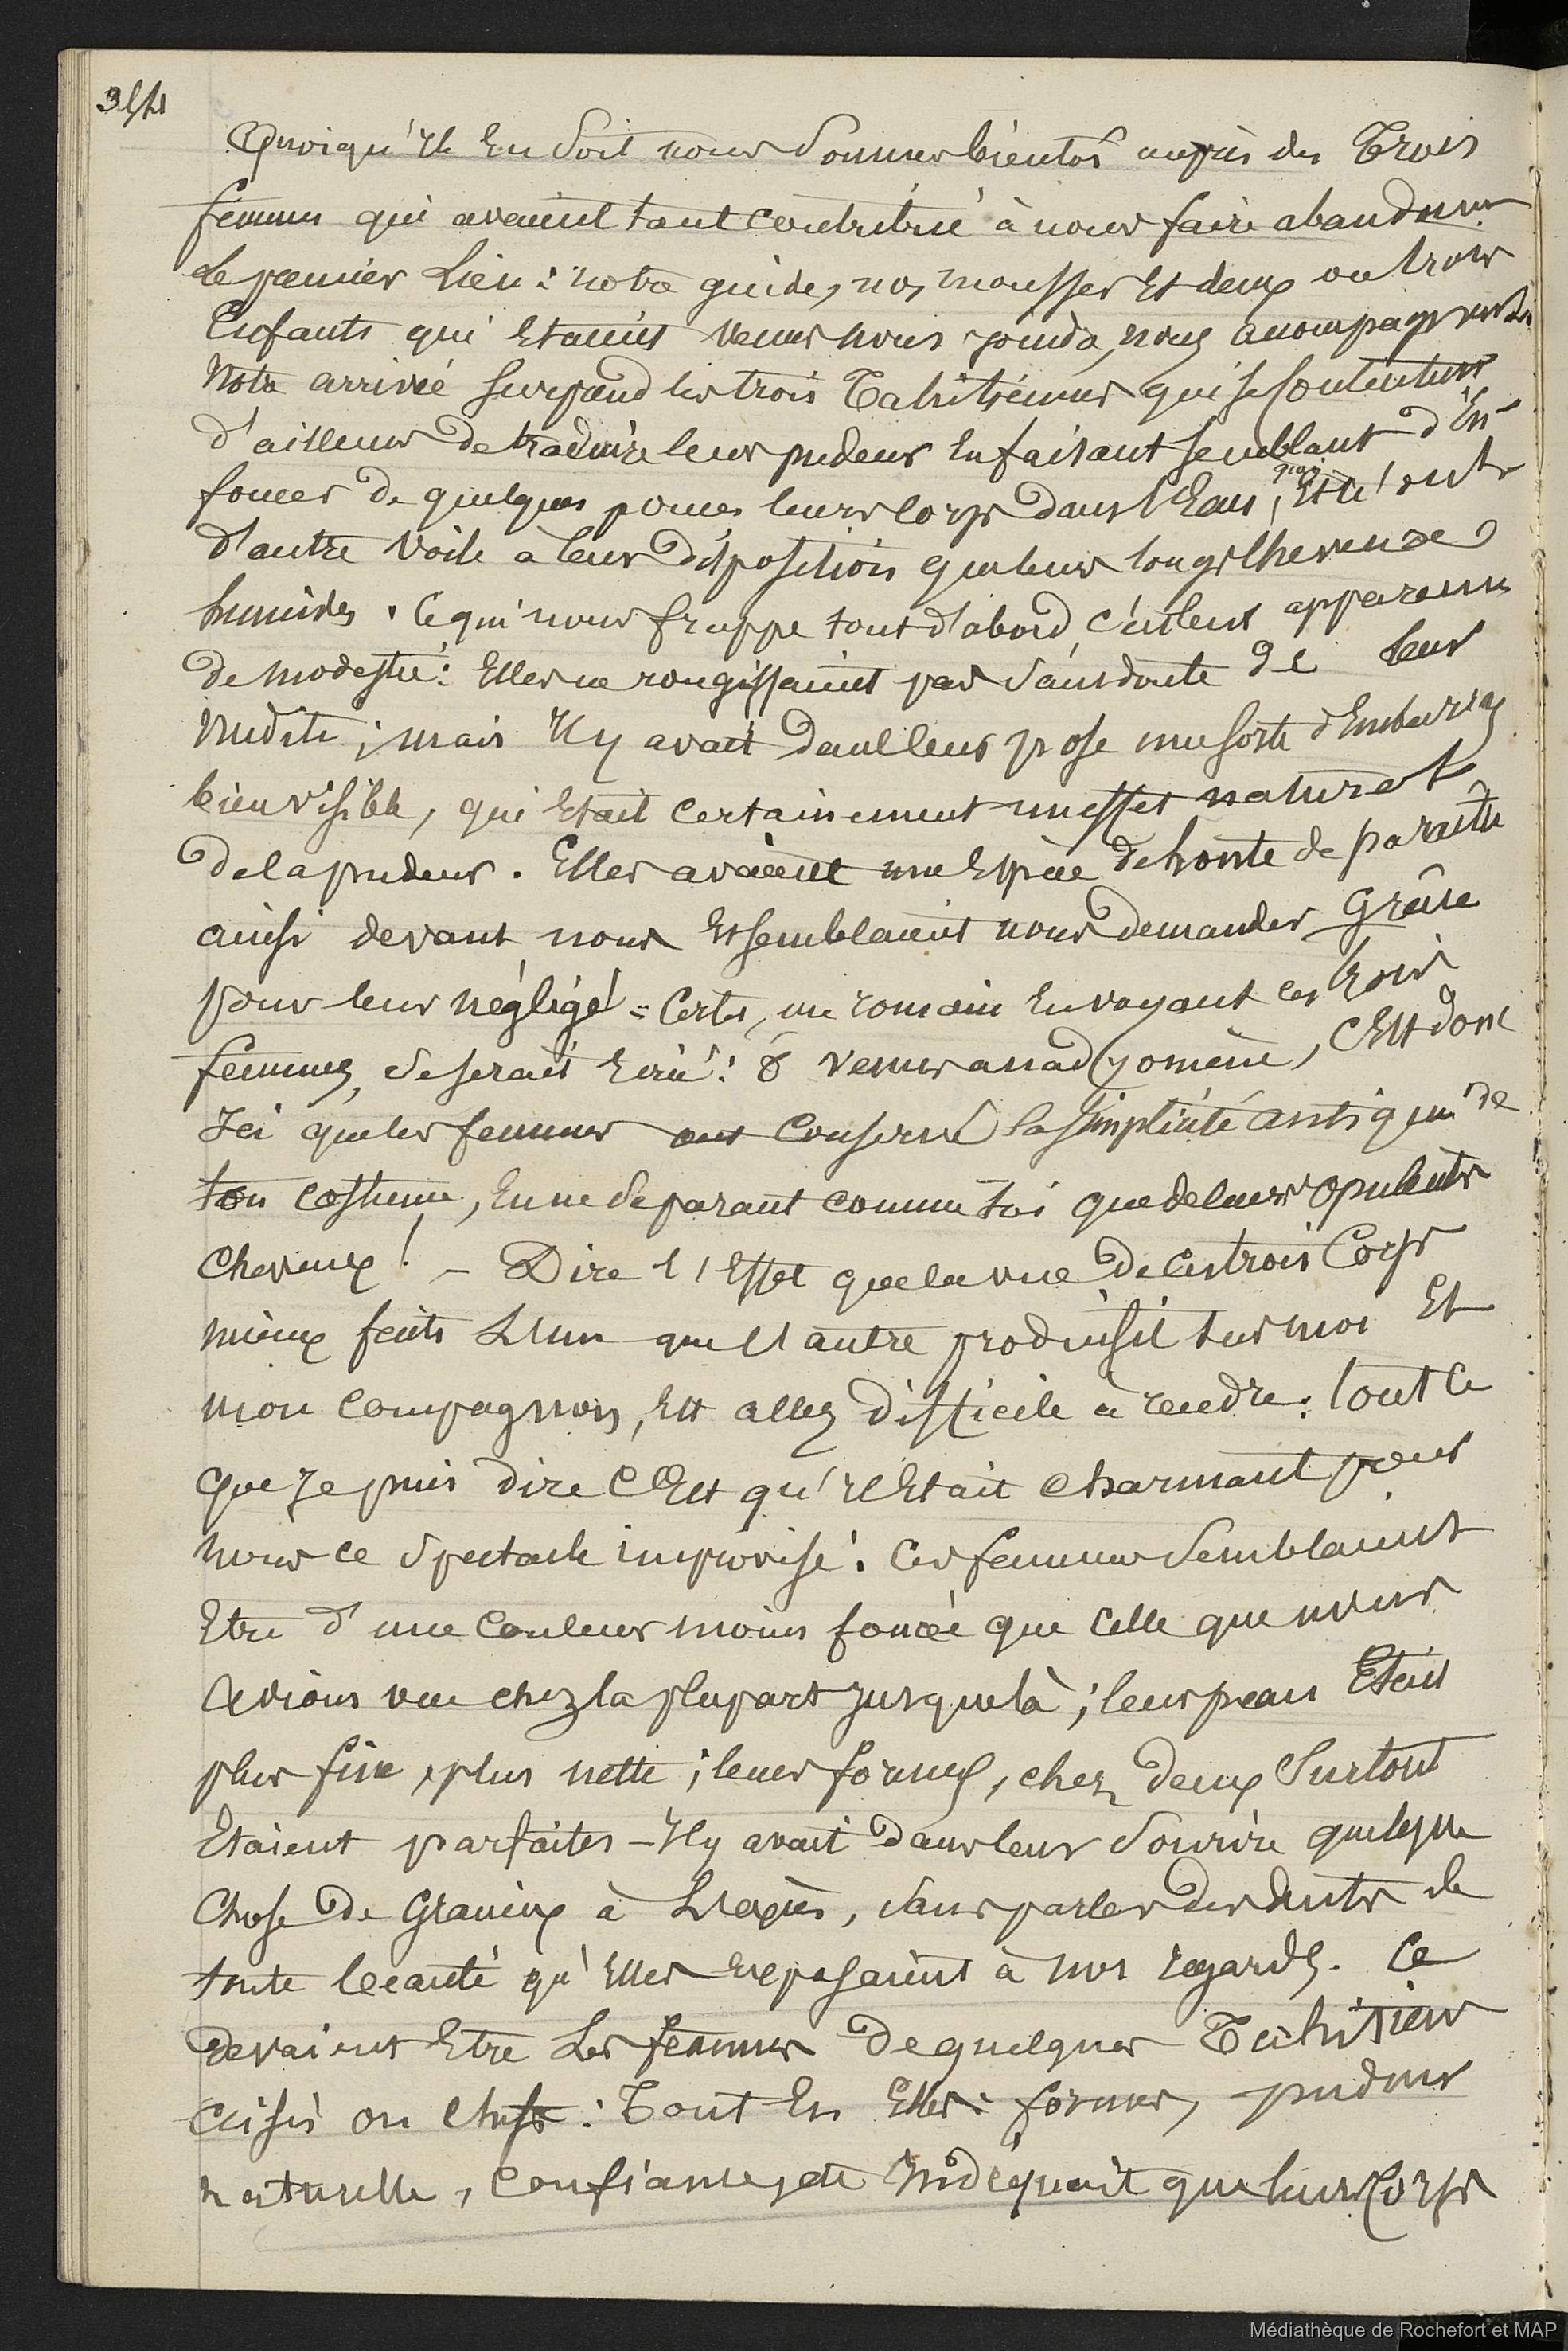 354
Quoiqu'il En Soit nous Sommes bientôt auprès des Trois
femmes qui avaient tant contribué à nous faire abandonner
Le premier Lieu: notre guide, nos mousses Et deux ou trois
Enfants qui Etaient venus nous joindre, nous accompagnent.
Notre arrivée surprend les trois Tahitiennes qui se contentent
d'ailleurs de traduire leur pudeur En faisant semblant d'En-
foncer de quelques pouces leurs corps dans l'Eau, Et n'ont
d'autre Voile à leur disposition que leurs longs cheveux
humides. Ce qui nous frappe tout d'abord, c'est leur apparence
de modestie: Elles ne rougissaient pas Sans doute de leur
nudité; mais Il y avait dans leur pose une sorte d'Embarras
bien visible, qui Etait certainement un effet naturel
de la pudeur. Elles avaient une Espèce de honte de paraître
ainsi devant nous Et semblaient nous demander Grâce
pour leur négligé = Certes, un romain En voyant ces trois
femmes, Se serait Ecrié: ô venus anadyomène, c'Est donc
Ici que les femmes ont Conservé la Simplicité antique de
ton costume, En ne Se parant comme toi que de leurs opulents
Cheveux! – Dire l'Effet que la vue de Ces trois Corps
mieux faits L'un que l'autre produisit sur moi Et
mon Compagnon, Est assez difficile à rendre: tout ce
que Je puis dire C'Est qu'Il Etait charmant pour
nous ce Spectacle improvisé. Ces femmes Semblaient
Etre d'une Couleur moins foncée que Celle que nous
avions vue chez la plupart Jusque là; leur peau Etait
plus fine, plus nette; leurs formes, chez deux Surtout
Etaient parfaites – Il y avait dans leur Sourire quelque
Chose de Gracieux à L'excès, Sans parler des dents de
toute beauté qu'Elles Exposaient à nos regards. Ce
devaient Etre Les femmes de quelques Tahitiens
aisés ou Chefs: Tout En Elles: formes, pudeur
naturelle, Confiance, etc Indiquait que leurs Corps
Médiathèque de Rochefort et MAP